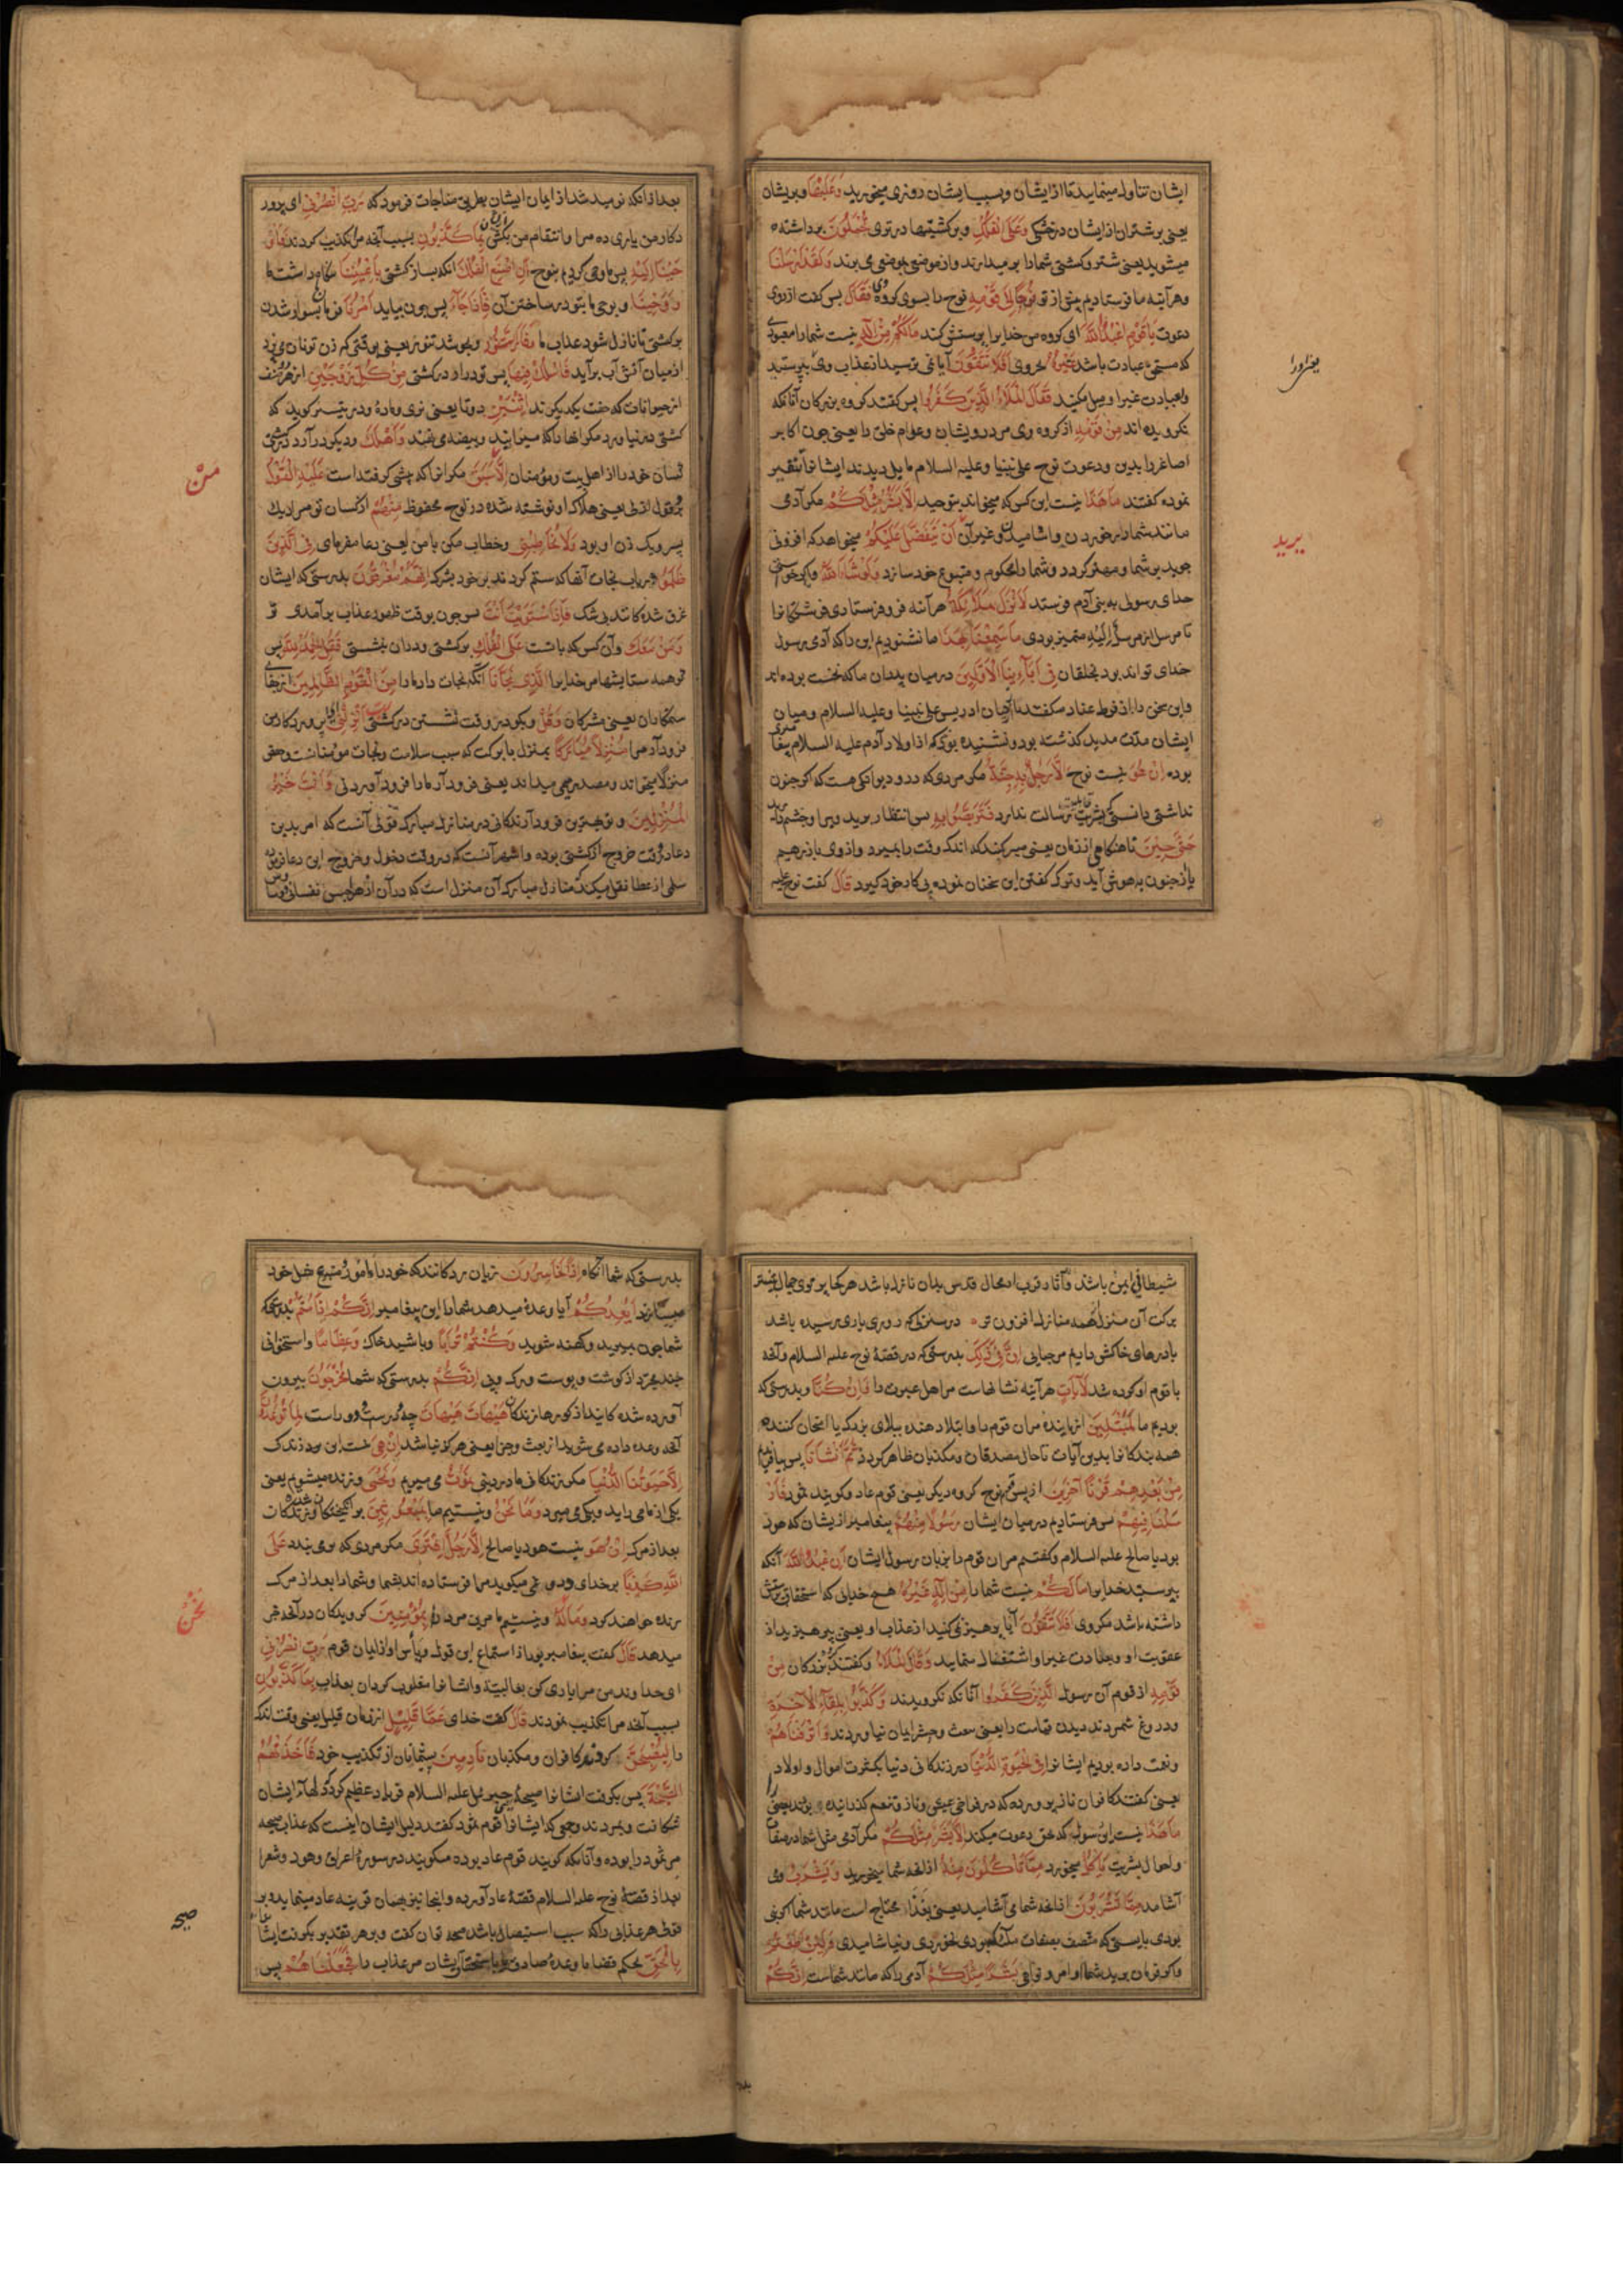 ایشان تناول مینمایید تا از ایشان و بسبب ایشان روزی میخورید وَعَلَیْهَا و بر ایشان
یعنی بر شتران از ایشان در خشکی وَعَلَی الْفُلْکِ و بر کشتیها در تری تُحْمَلُونَ برداشته
میشوید یعنی شتر و کشتی شما را بر میدارند و از موضعی بموضعی می برند وَلَقَدْ اَرْسَلْنَا
و هر آینه ما فرستادیم پیش از تو نُوحًا اِلَی قَوْمِهِ نوح را بسوی کروه وی فَقَالَ پس کفت از روی
دعوت یَا قَوْمِ اعْبُدُوا اللَّهَ ای کروه من خدایرا پرستش کنید مَالَکُمْ مِنْ اِلَهٍ نیست شما را معبودی
که مستحق عبادت باشد غَیْرُهُ بجز وی اَفَلَا تَتَّقُونَ آیا نمی ترسید از عذاب وی پرستید
و بعبادت غیر او میل میکنید فَقَالَ الْمَلَأُ الَّذِینَ کَفَرُوا پس کفتند کروه بزرکان آنانکه
نکرویده اند مِنْ قَوْمِهِ از کروه وی مر درویشان و عوام خلق را یعنی چون اکابر
اصاغر را بدین و دعوت نوح علی نبینا و علیه السلام مایل دیدند ایشانرا تنفیر
نموده کفتند مَا هَذَا نیست این کس که میخواند بتوحید اِلَّا بَشَرٌ مِثْلُکُمْ مکر آدمی
مانند شما در خوردن و اشامیدن و غیر آن اَنْ یَتَفَضَّلَ عَلَیْکُمْ میخواهد که افزونی
جوید بر شما و مهتر کردد و شما را محکوم و متبوع خود سازد وَلَوْ شَاءَ اللَّهُ و اکر خواستی
خدای رسولی به بنی آدم فرستد لَاَنْزَلَ مَلَائِکَةً هر آینه فرو فرستادی فرشتکانرا
تا مرسل از مرسل اِلَیْهِ متمیز بودی مَا سَمِعْنَا بِهَذَا ما نشنودیم این را که آدمی رسول
خدای تواند بود بخلقان فِی آبَائِنَا الْاَوَّلِینَ در میان پدران ما که نخست بوده اند
ایشان مدت مدید کذشته بود و نشنیده بودند که از اولاد آدم علیه السلام پیغامبری
بوده اِنْ هُوَ نیست نوح اِلَّا رَجُلٌ بِهِ جِنَّةٌ مکر مردی که در و دیوانکی هست که اکر جنون
نداشتی دانستی که بشر قابلیت رسالت ندارد فَتَرَبَّصُوا بِهِ پس انتظار برید ویرا و چشم دارید
حَتَّی حِینٍ تا هنکامی از زمان یعنی صبر کنید که اندک وقت را بمیرد و از وی باز رهیم
یا از جنون بهوش آید و ترک کفتن این سخنان نموده پی کار خود کیرد قَالَ کفت نوح علیه
یرید
بعد از انکه نومید شد از ایمان ایشان بطریق مناجات فرمود که رَبِّ انْصُرْنِی ای پرور
دکار من یاری ده مرا و انتقام من بکش از ایشان بِمَا کَذَّبُونِ بسبب آنچه مرا تکذیب کردند فَاَوْ
حَیْنَا اِلَیْهِ پس ما وحی کردیم بنوح اَنِ اصْنَعِ الْفُلْکَ انکه بساز کشتی بِاَعْیُنِنَا بنکاه داشت ما
وَوَحْیِنَا و بوحی ما بتو در ساختن آن فَاِذَا جَاءَ پس چون بیاید اَمْرُنَا فرمان ما بسوار شدن
بر کشتی یا نازل شود عذاب ما وَفَارَ التَّنُّورُ و بجوشد تنور یعنی بوقتی که زن تو نان می پزد
از میان آتش آب بر آید فَاسْلُکْ فِیهَا پس تو در آر در کشتی مِنْ کُلٍّ زَوْجَیْنِ از هر صنف
از حیوانات که جفت یکدیکرند اثْنَیْنِ دو تا یعنی نری و ماده و در تیسیر کوید که
کشتی در نیاورد مکر انها را که میزایند و بیضه می نهند وَاَهْلَکَ و دیکر در آر در کشتی
کسان خود را از اهل بیت و مؤمنان اِلَّا مَنْ سَبَقَ مکر انرا که پیشی کرفته است عَلَیْهِ الْقَوْلُ
بر و قول ازلی یعنی هلاک او نوشته شده در لوح محفوظ مِنْهُمْ از کسان تو مراد یک
پسر و یک زن او بود وَلَا تُخَاطِبْنِی و خطاب مکن با من یعنی دعا مفرمای فِی الَّذِینَ
ظَلَمُوا در باب نجات آنها که ستم کردند بر خود بشرک اِنَّهُمْ مُغْرَقُونَ بدرستی که ایشان
غرق شده کانند بی شک فَاِذَا اسْتَوَیْتَ اَنْتَ پس چون بوقت ظهور عذاب بر آمدی تو
وَمَنْ مَعَکَ و آن کس که با تست عَلَی الْفُلْکِ بر کشتی و در ان نشستی فَقُلِ الْحَمْدُ لِلَّهِ پس
کو همه ستایشها مر خدایرا الَّذِی نَجَّانَا آنکه نجات داد ما را مِنَ الْقَوْمِ الظَّالِمِینَ از جفای
ستمکاران یعنی مشرکان وَقُلْ و بکو در وقت نشستن در کشتی رَبِّ اَنْزِلْنِی ای پروردکار من
فرود آر مرا مُنْزَلًا مُبَارَکًا بمنزل با برکت که سبب سلامت و نجات مؤمنانست و بعضی
منزلا میخوانند و مصدر میمی میدانند یعنی فرود آر ما را فرود آوردنی وَاَنْتَ خَیْرُ
الْمُنْزِلِینَ و تو بهترین فرود آرندکانی در منازل مبارک قولی آنست که امر بدین
دعا در وقت خروج از کشتی بوده و اشهر آنست که در وقت دخول و خروج این دعا فرموده
سلمی از عطا نقل میکند که منازل مبارک آن منزل است که در آن از هواجس نفسانی و وساوس
مَنْ
شیطانی ایمن باشند و آثار قرب از محال قدس بدان نازل باشد هر کجا پرتوی جمال بیشتر
برکت آن منزل از همه منازل افزون تر در منزلی که روزی یاری رسیده باشد
با ذرهای خاکش داریم مرحبایی اِنَّ فِی ذَلِکَ بدرستی که در قصهٔ نوح علیه السلام و آنچه
با قوم او کرده شد لَآیَاتٍ هر آینه نشانهاست مر اهل عبرت را وَاِنْ کُنَّا و بدرستی که
بودیم ما لَمُبْتَلِینَ آزماینده مر ان قوم را و ابتلا دهنده ببلای بزرک یا امتحان کننده
همه بندکانرا بدین آیات تا حال مصدقان و مکذبان ظاهر کردد ثُمَّ اَنْشَأْنَا پس بیافریدیم
مِنْ بَعْدِهِمْ قَرْنًا آخَرِینَ از پس قوم نوح کروه دیکر یعنی قوم عاد و کویند ثمود فَاَرْ
سَلْنَا فِیهِمْ پس فرستادیم در میان ایشان رَسُولًا مِنْهُمْ پیغامبر از ایشان که هود
بود یا صالح علیه السلام و کفتیم مر ان قوم را بزبان رسول ایشان اَنِ اعْبُدُوا اللَّهَ آنکه
بپرستید خدایرا مَا لَکُمْ نیست شما را مِنْ اِلَهٍ غَیْرُهُ هیچ خدایی که استحقاق پرستش
داشته باشد مکر وی اَفَلَا تَتَّقُونَ آیا پرهیز نمی کنید از عذاب او یعنی بپرهیزید از
عقوبت او و بعبادت غیر او اشتغال منمایید وَقَالَ الْمَلَأُ و کفتند بزرکان مِنْ
قَوْمِهِ از قوم آن رسول الَّذِینَ کَفَرُوا آنانکه نکرویدند وَکَذَّبُوا بِلِقَاءِ الْآخِرَةِ
و دروغ شمردند دیدن قیامت را یعنی ببعث و حشر ایمان نیاوردند وَاَتْرَفْنَاهُمْ
و نعمت داده بودیم ایشانرا فِی الْحَیَوةِ الدُّنْیَا در زندکانی دنیا بکثرت اموال و اولاد
یعنی کفتند کافران ناز پرورده که در فراخی عیش و ناز و تنعم کذرانیده بودند یعنی
مَا هَذَا نیست این رسول که حق دعوت میکند اِلَّا بَشَرٌ مِثْلُکُمْ مکر آدمی مثل شما در صفات
و احوال بشریت یَأْکُلُ میخورد مِمَّا تَأْکُلُونَ مِنْهُ از انچه شما میخورید وَیَشْرَبُ و می
آشامد مِمَّا تَشْرَبُونَ از انچه شما می آشامید یعنی بغذا محتاج است مانند شما اکر نبی
بودی بایستی که متصف بصفات ملک بودی نخوردی و نیاشامیدی وَلَئِنْ اَطَعْتُمْ
و اکر فرمان برید شما اوامر و نواهی بَشَرًا مِثْلَکُمْ آدمی را که مانند شماست اِنَّکُمْ
بدرستی که شما آنکاه اِذًا لَخَاسِرُونَ زیان زدکانند که خود را مأمور و متبع مثل خود
میسازند اَیَعِدُکُمْ آیا وعده میدهد شما را این پیغامبر اَنَّکُمْ اِذَا مِتُّمْ بدرستی که
شما چون بمیرید و کهنه شوید وَکُنْتُمْ تُرَابًا و باشید خاک وَعِظَامًا و استخوانی
چند مجرد از کوشت و پوست و رک و پی اَنَّکُمْ بدرستی که شما مُخْرَجُونَ بیرون
آورده شده کانید از کورها زندکان هَیْهَاتَ هَیْهَاتَ چه دورست و دور است لِمَا تُوعَدُونَ
آنچه وعده داده می شوید از بعث و جزا یعنی هرکز نباشد اِنْ هِیَ نیست این مر زندکی
اِلَّا حَیَوتُنَا الدُّنْیَا مکر زندکانی ما در دنیی نَمُوتُ می میریم وَنَحْیَی و زنده میشویم یعنی
یکی از ما می زاید و یکی می میرد وَمَا نَحْنُ و نیستیم ما بِمَبْعُوثِینَ بر انکیختکان و زنده شدکان
بعد از مرک اِنْ هُوَ نیست هود یا صالح اِلَّا رَجُلٌ افْتَرَی مکر مردی که بر می بندد عَلَی
اللَّهِ کَذِبًا بر خدای دروغی میکوید مرا فرستاده اند بشما و شما را بعد از مرک
زنده خواهند کرد وَمَا نَحْنُ لَهُ و نیستیم ما مر این مرد را بِمُؤْمِنِینَ کرویدکان در آنچه خبر
میدهد قَالَ کفت پیغامبر بعد از استماع این قول و یأس او از ایمان قوم رَبِّ انْصُرْنِی
ای خداوند من مرا یاری کن بغالبیت و ایشانرا مغلوب کردان بعذاب بِمَا کَذَّبُونِ
بسبب آنچه مرا تکذیب نمودند قَالَ کفت خدای عَمَّا قَلِیلٍ از زمان قلیل یعنی وقت اندک
را لَیُصْبِحُنَّ کردند کافران و مکذبان نَادِمِینَ پشیمانان از تکذیب خود فَاَخَذَتْهُمُ
الصَّیْحَةُ پس بکرفت ایشانرا صیحهٔ جبرئیل علیه السلام فریاد عظیم کرد که دلها از ایشان
شکافت و بمردند و جمعی که ایشانرا قوم ثمود کفتند دلیل ایشان اینست که عذاب صیحه
مر ثمود را بوده و آنانکه کویند قوم عاد بوده میکویند در سورهٔ اعراف و هود و شعرا
بعد از قصهٔ نوح علیه السلام قصهٔ عاد آورده و اینجا نیز بهمان قرینه عاد مینماید و بر
بِالْحَقِّ بحکم قضا یا وعدهٔ صادق یا باستحقاق ایشان مر عذاب را فَجَعَلْنَاهُمْ پس
نَحْنُ
صح